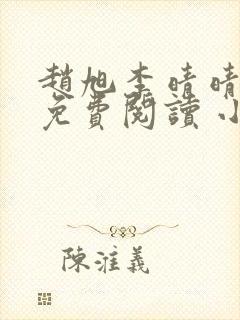 趙旭李晴晴
免費閱讀小
陳淮義